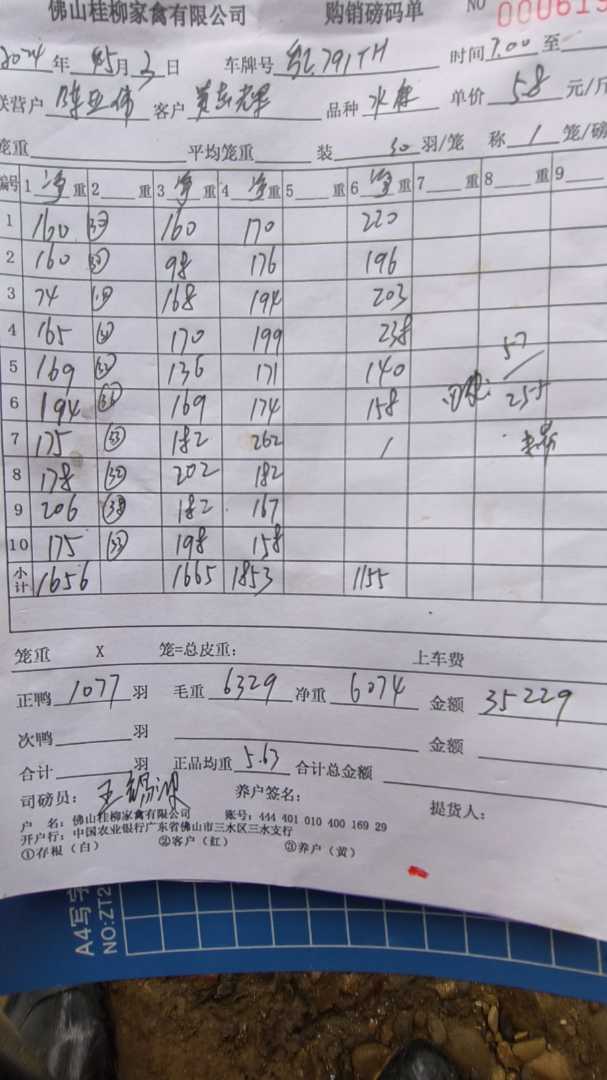 佛山桂柳家禽有限公司 购销磅码单 NO 000619
2024年 5月3日 车牌号 791TH 时间7.00至
联营户 陈亚伟 客户 黄东辉 品种 单价 5.8 元/斤
笼重 平均笼重 装 30 羽/笼 称 1 笼/磅
编号 1 净 重 2 重 3 净 重 4 净 重 5 重 6 净 重 7 重 8 重 9
1 160 33 160 170 220
2 160 98 176 196
3 74 168 194 203
4 165 170 199 238
5 169 136 171 140 57
6 194 169 174 158 255
7 175 33 182 262 /
8 178 32 202 182
9 206 38 182 167
10 175 33 198 158
小计 1656 1665 1853 1155
笼重 X 笼=总皮重: 上车费
正鸭 1077 羽 毛重 6329 净重 6074 金额 35229
次鸭 羽 金额
合计 羽 正品均重 5.63 合计总金额
司磅员: 养户签名: 提货人:
户 名: 佛山桂柳家禽有限公司 账号: 444 401 010 400 169 29
开户行: 中国农业银行广东省佛山市三水区三水支行
①存根(白) ②客户(红) ③养户(黄)
A4写字
NO:ZT2